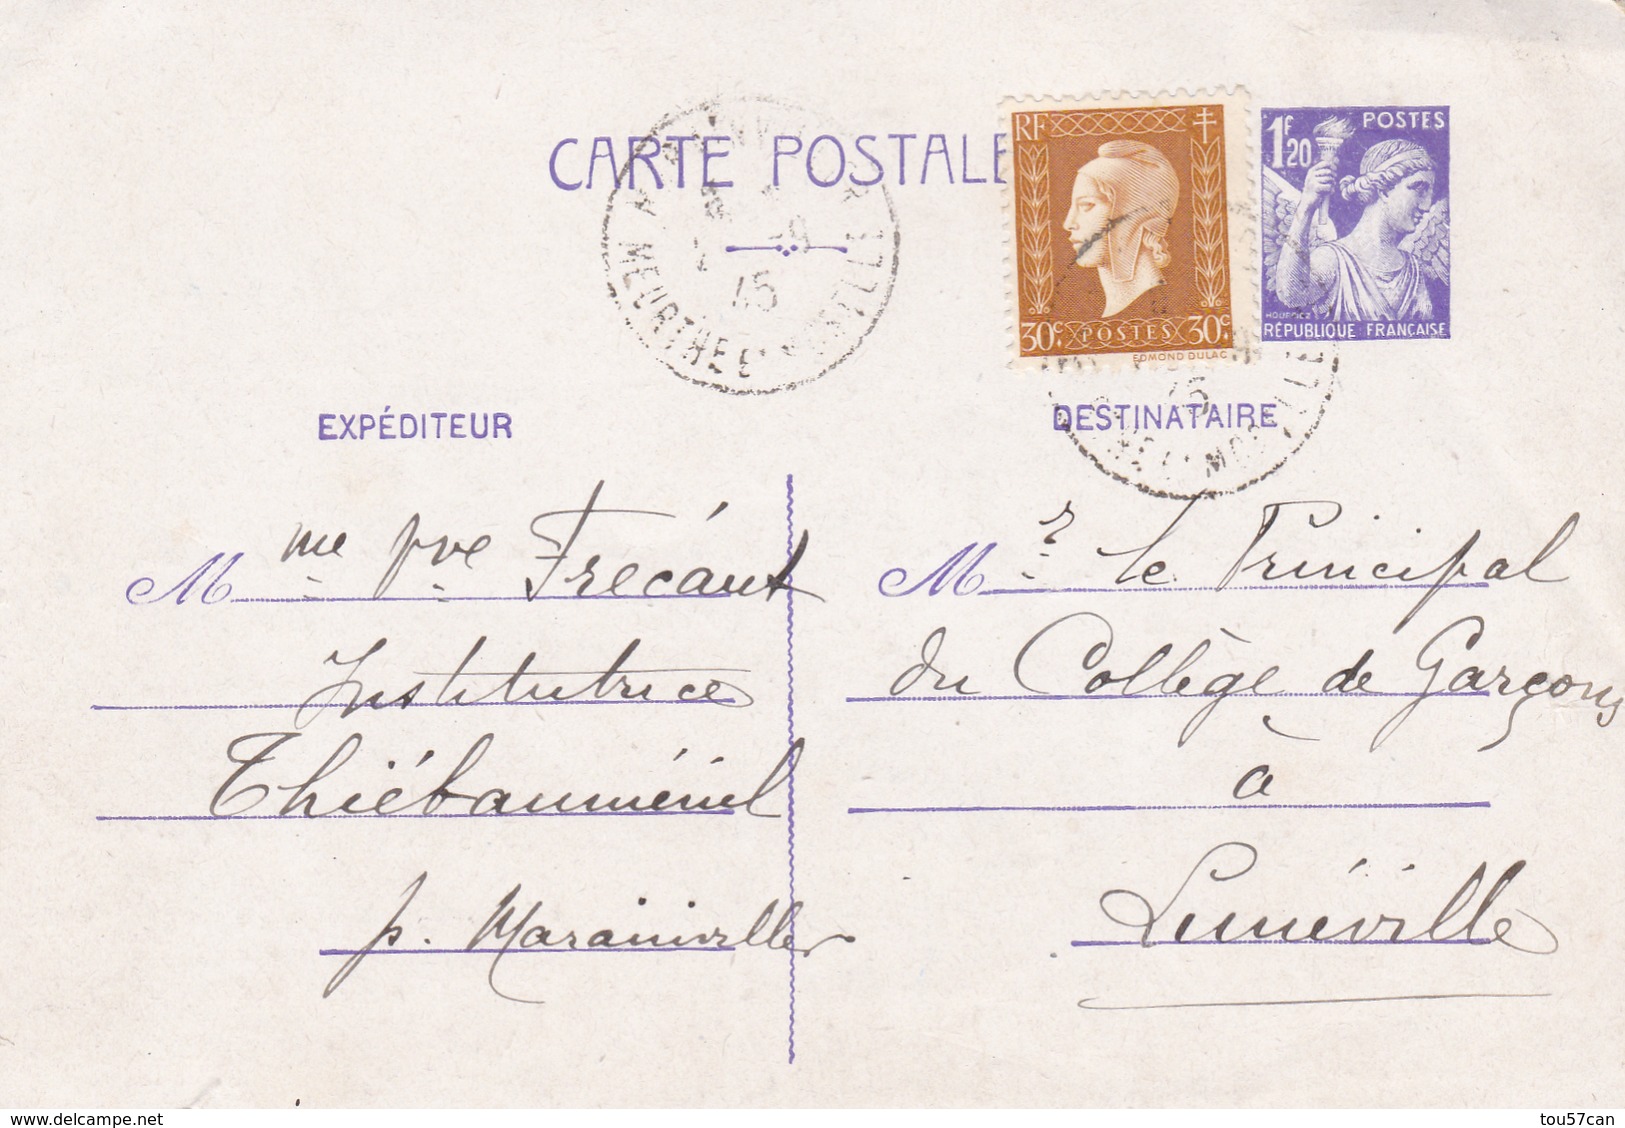 CARTE POSTALE
RF
30c. POSTES 30c.
EDMOND DULAC
1F20 POSTES
HOURRIEZ
RÉPUBLIQUE FRANÇAISE
45
MEURTHE ET MOSELLE
EXPÉDITEUR
DESTINATAIRE
Mme pve Frécaut
Institutrice
Thiébauménil
p. Marainviller
Mr le Principal
du Collège de Garçons
à
Lunéville
delcampe.net
tou57can